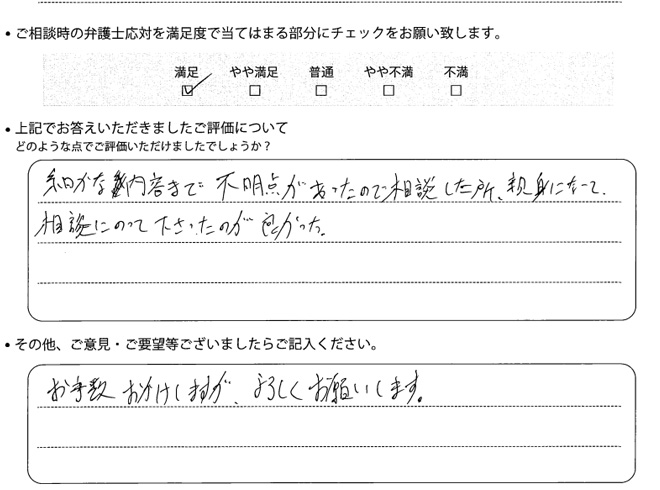 • ご相談時の弁護士応対を満足度で当てはまる部分にチェックをお願い致します。
満足 やや満足 普通 やや不満 不満
☑ □ □ □ □
• 上記でお答えいただきましたご評価について
どのような点でご評価いただけましたでしょうか?
細かな内容まで不明点があったので相談した所、親身になって、
相談にのって下さったのが良かった。
• その他、ご意見・ご要望等ございましたらご記入ください。
お手数おかけしますが、よろしくお願いします。